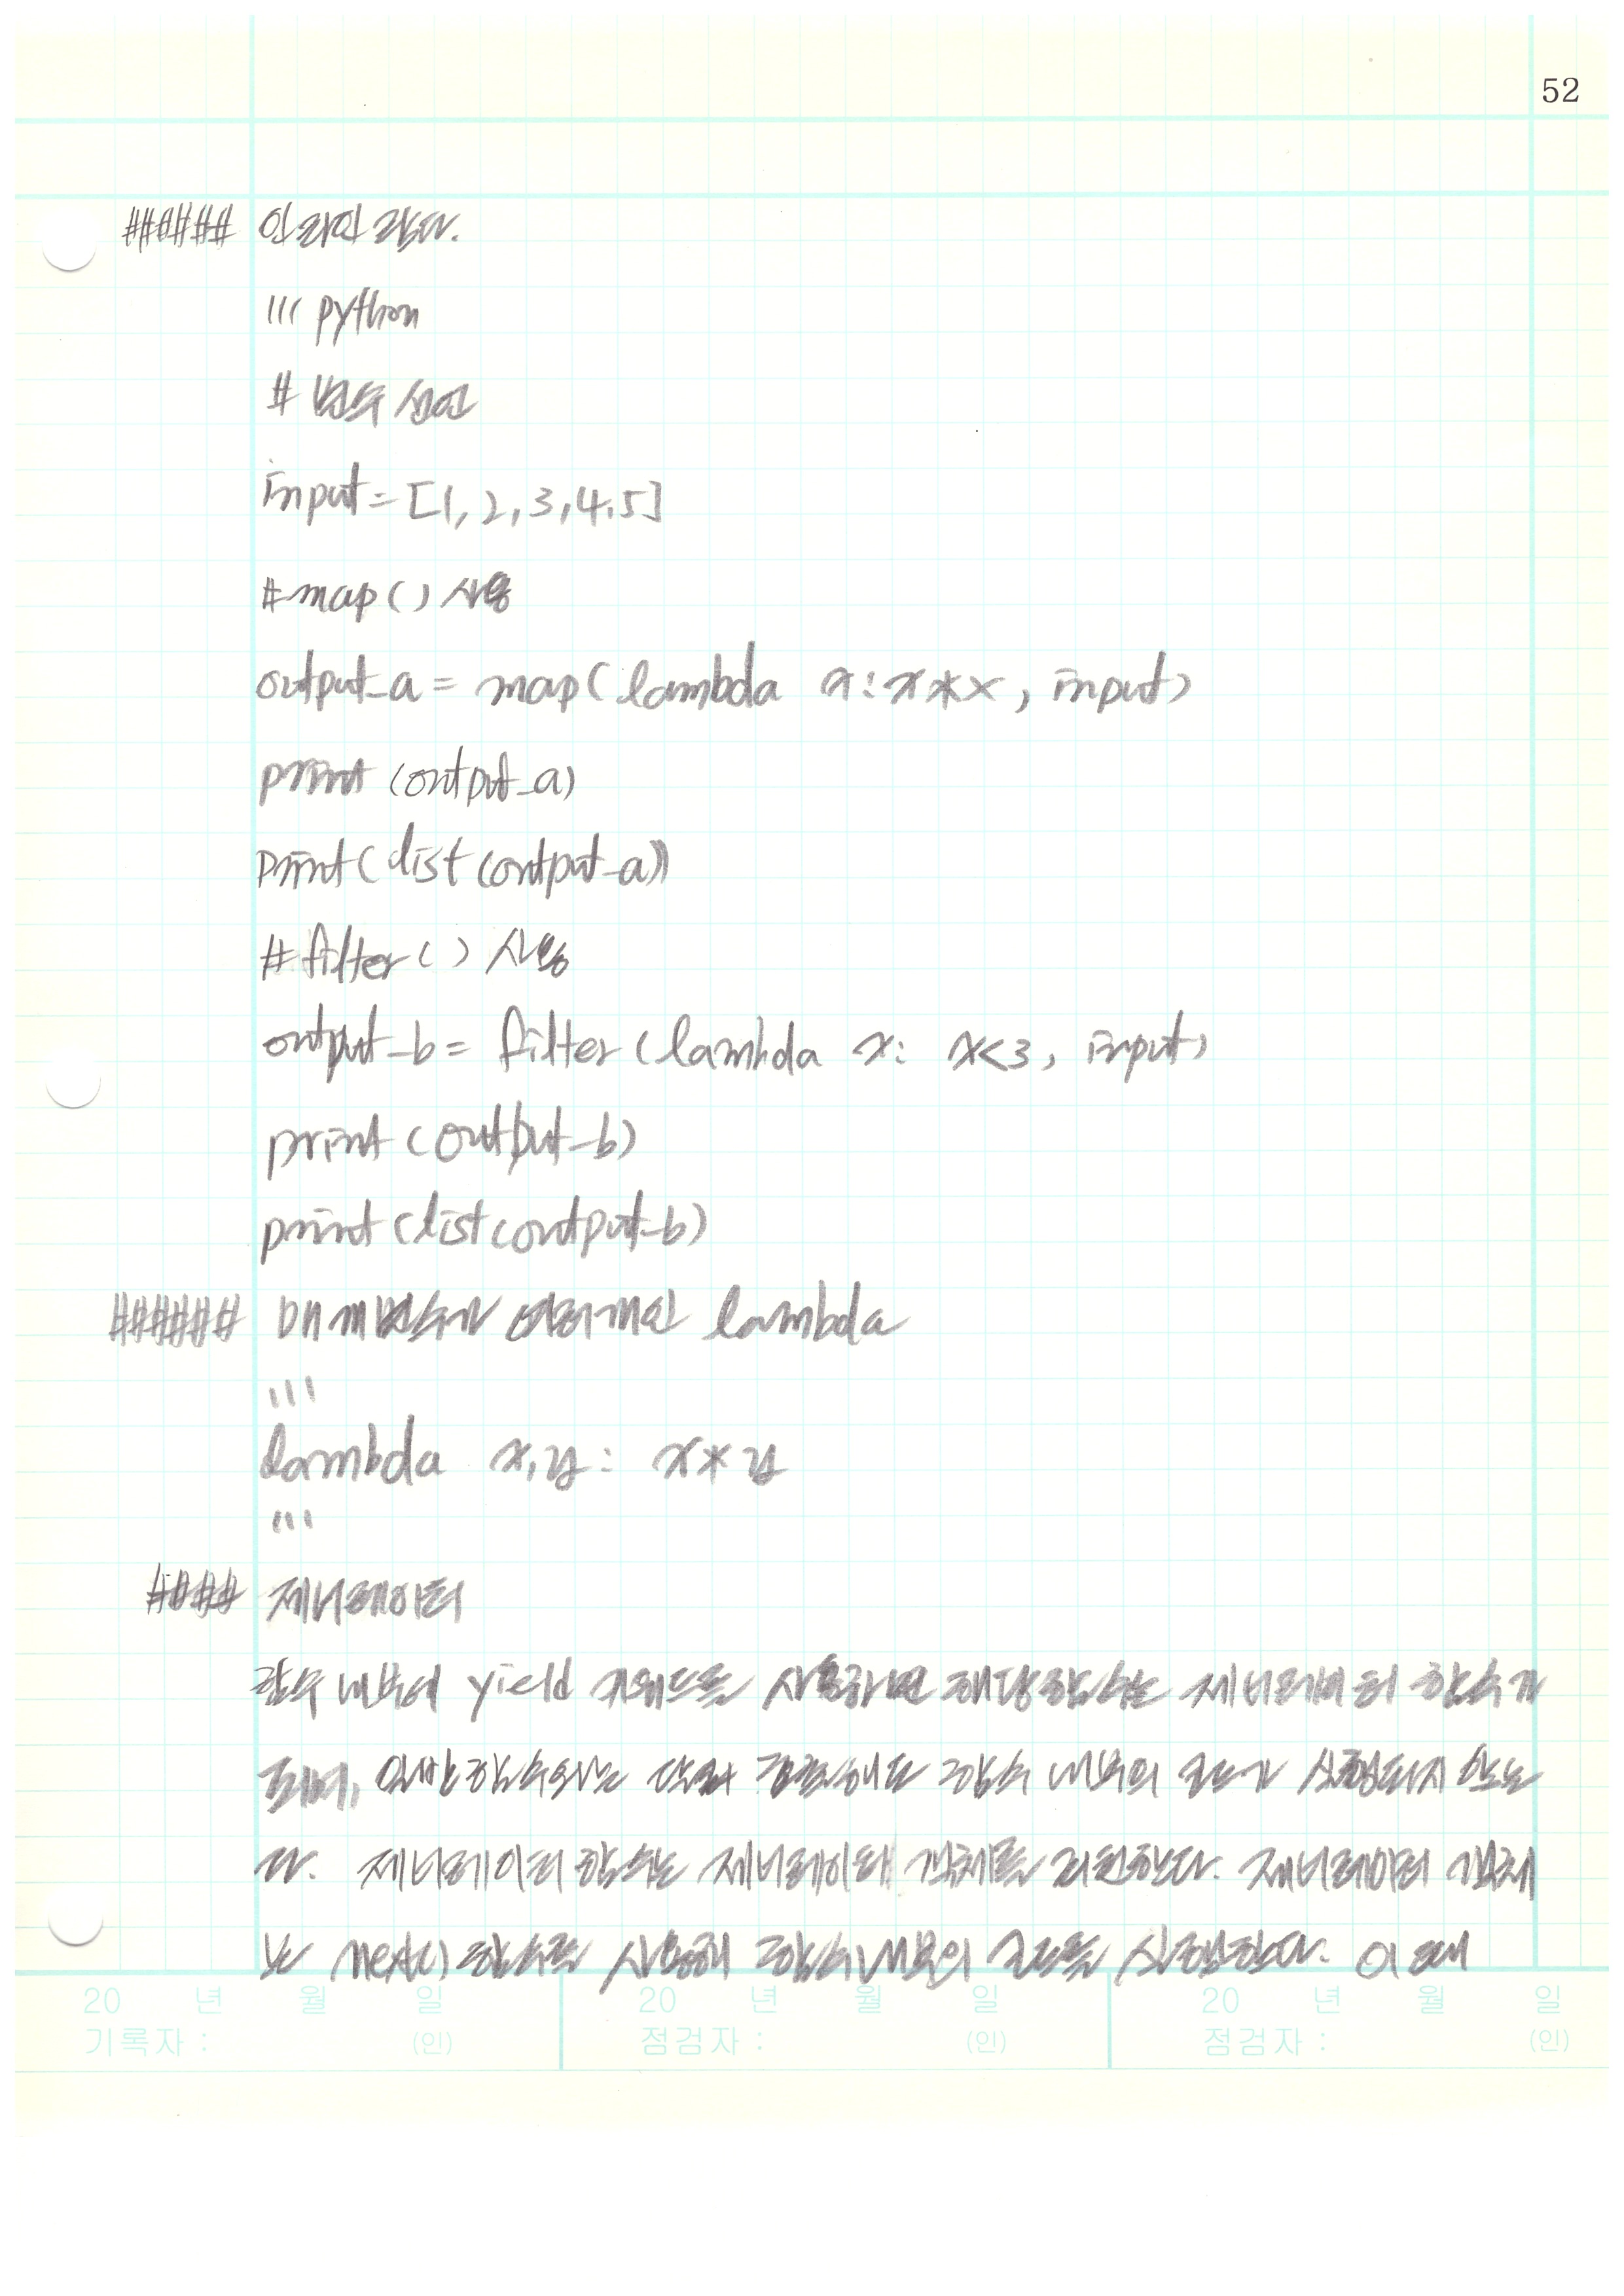 52
###### 인라인 람다.
''' python
# 변수 선언
input = [1, 2, 3, 4, 5]
# map() 사용
output_a = map(lambda x : x * x, input)
print (output_a)
print(list (output_a))
# filter() 사용
output_b = filter (lambda x: x<3, input)
print (output_b)
print (list (output_b)
###### 매개변수가 여러개인 lambda
'''
lambda x, y : x * y
'''
#### 제너레이터
함수 내부에 yield 키워드를 사용하면 해당 함수는 제너레이터 함수가
되며, 일반 함수와는 달리 호출해도 함수 내부의 코드가 실행되지 않는
다. 제너레이터 함수는 제너레이터 객체를 리턴한다. 제너레이터 객체
는 next() 함수를 사용해 함수 내부의 코드를 실행한다. 이 때
20 년 월 일 20 년 월 일 20 년 월 일
기록자 : (인) 점검자 : (인) 점검자 : (인)